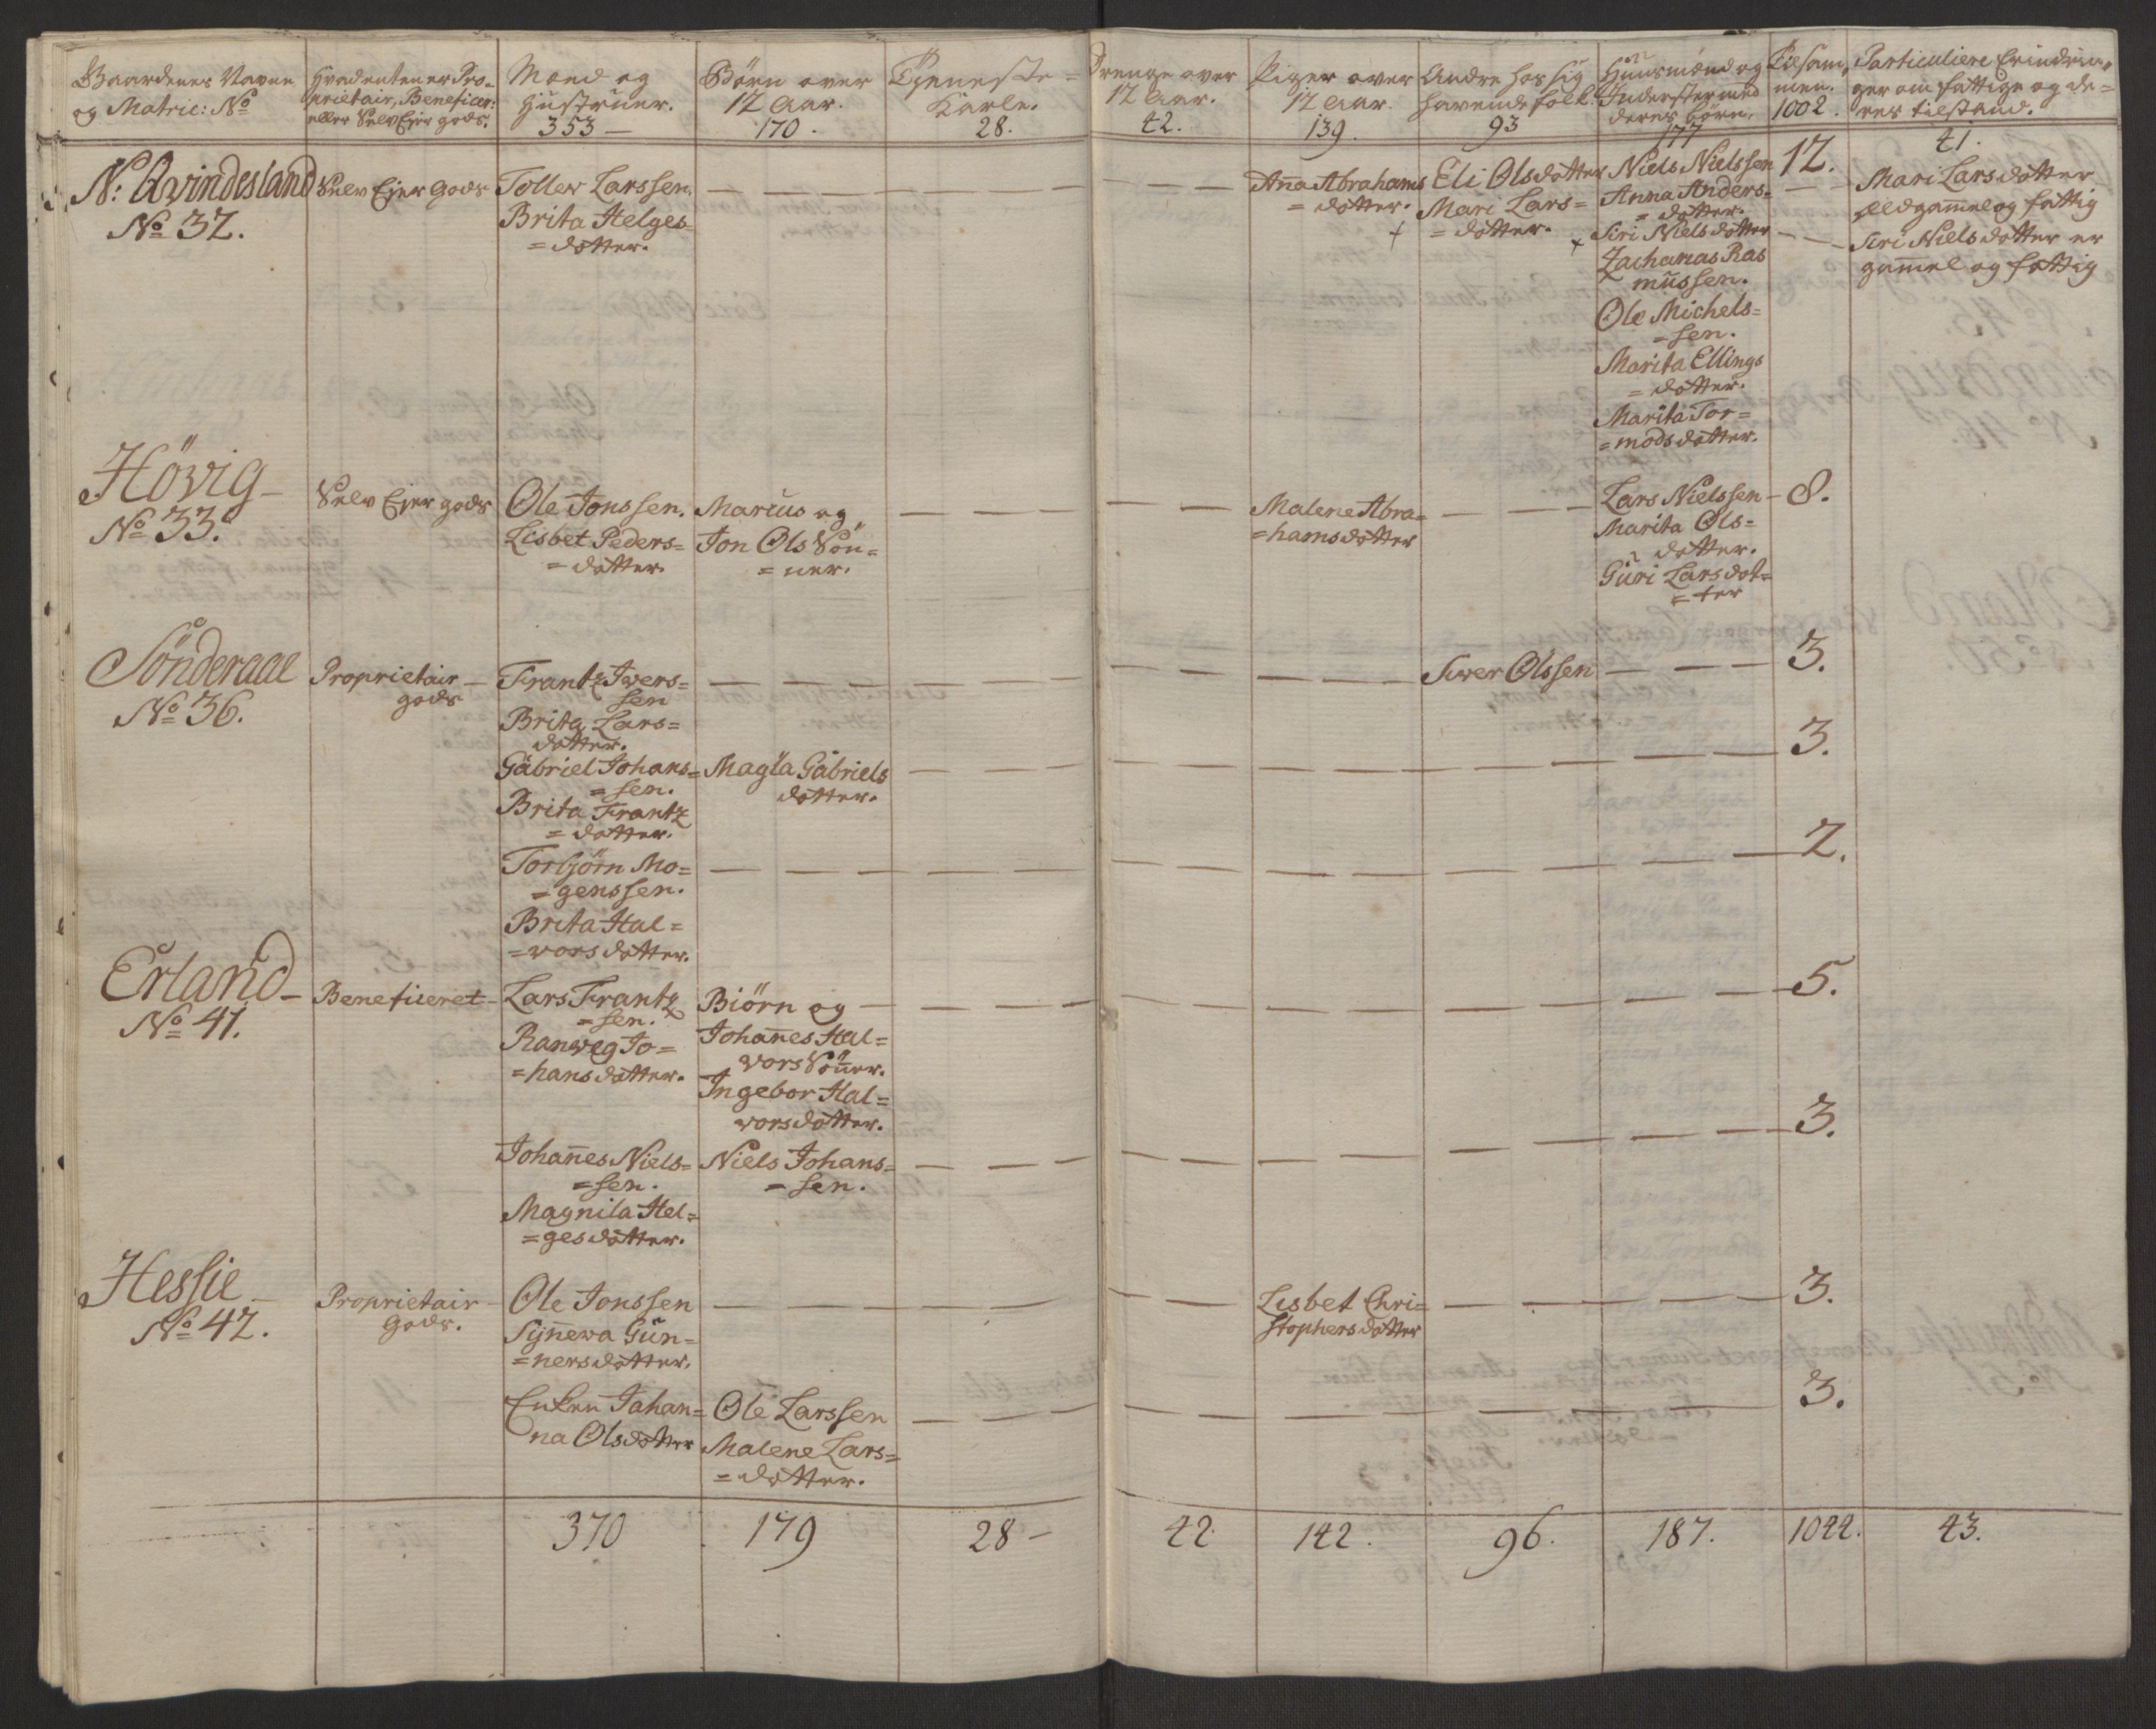 Gaardenes Navne
og Matric: No
Hvadenten er Pro-
prietair, Beneficer:
eller Selv Ejer gods.
Mænd og
Hustruer.
353 —
Børn over
12 Aar.
170.
Tieneste-
Karle.
28.
Drenge over
12 Aar.
42.
Piger over
12 Aar.
139.
Andre hos sig
havende folk.
93
Huusmænd og
Inderster med
deres børn.
177
Tilsam-
men.
1002.
Particuliere Erindrin-
ger om fattige og de-
res tilstand.
41.
N: Qvindesland
No 32.
Selv Ejer Gods
Toller Larssen.
Brita Helges
= dotter.
Anna Abrahams
= dotter.
Eli Olsdotter
Mari Lars=
= dotter.
Niels Nielssen
Anna Anders=
= dotter.
Siri Nielsdotter
Zacharias Ras
mussen.
Ole Michels=
= sen.
Marita Ellings
= dotter.
Marita Tor=
= modsdotter.
12.
Mari Larsdotter
eldgammel og fattig
Siri Nielsdotter er
gammel og fattig
Hövig
No 33.
Selv Ejer gods
Ole Jonssen.
Lisbet Peders=
= datter.
Marcus og
Jon Ols Sön=
= ner.
Malene Abra=
= hamsdotter
Lars Nielssen
Marita Ols=
dotter.
Guri Larsdot=
= ter
8.
Sönderaae
No 36.
Proprietair
gods
Frantz Ivers=
sen
Brita Lars=
dotter.
Siver Olssen
3.
Gabriel Johans=
= sen.
Brita Frantz
= dotter.
Magla Gabriels
dotter.
3.
Torbjörn Mo=
= genssen.
Brita Hal=
= vorsdotter.
2.
Erland
No 41.
Beneficeret
Lars Frantz
= sen.
Ranweg Jo=
= hansdotter.
Biörn og
Johannes Hal=
vors Sönner.
Ingebor Hal=
vorsdotter.
5.
Johannes Niels=
= sen.
Magnila Hel=
= gesdotter.
Niels Johans=
= sen.
3.
Hessie
No 42.
Proprietair
Gods.
Ole Jonssen
Synneva Gun=
= nersdotter.
Lisbet Chri=
stophersdotter
3.
Enken Johan=
na Olsdotter
Ole Larssen
Malene Lars=
= dotter.
3.
370
179
28 —
42
142.
96.
187.
1044.
43.